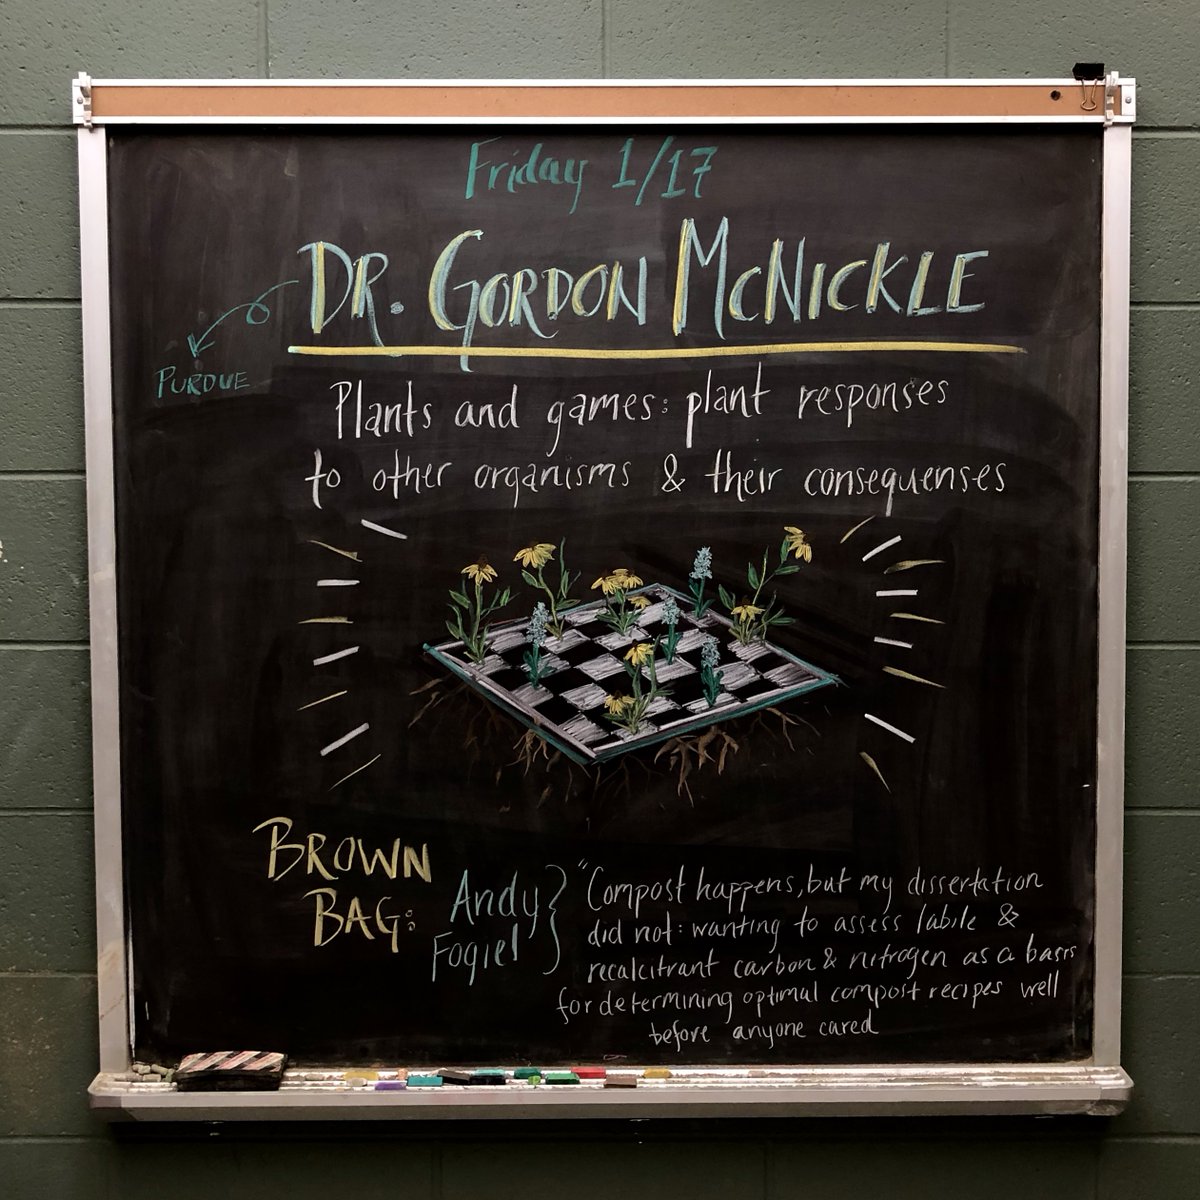 Friday 1/17
DR. GORDON MCNICKLE
PURDUE
Plants and games: plant responses
to other organisms & their consequenses
BROWN
BAG:
Andy
Fogiel
"Compost happens, but my dissertation
did not: wanting to assess labile &
recalcitrant carbon & nitrogen as a basis
for determining optimal compost recipes well
before anyone cared